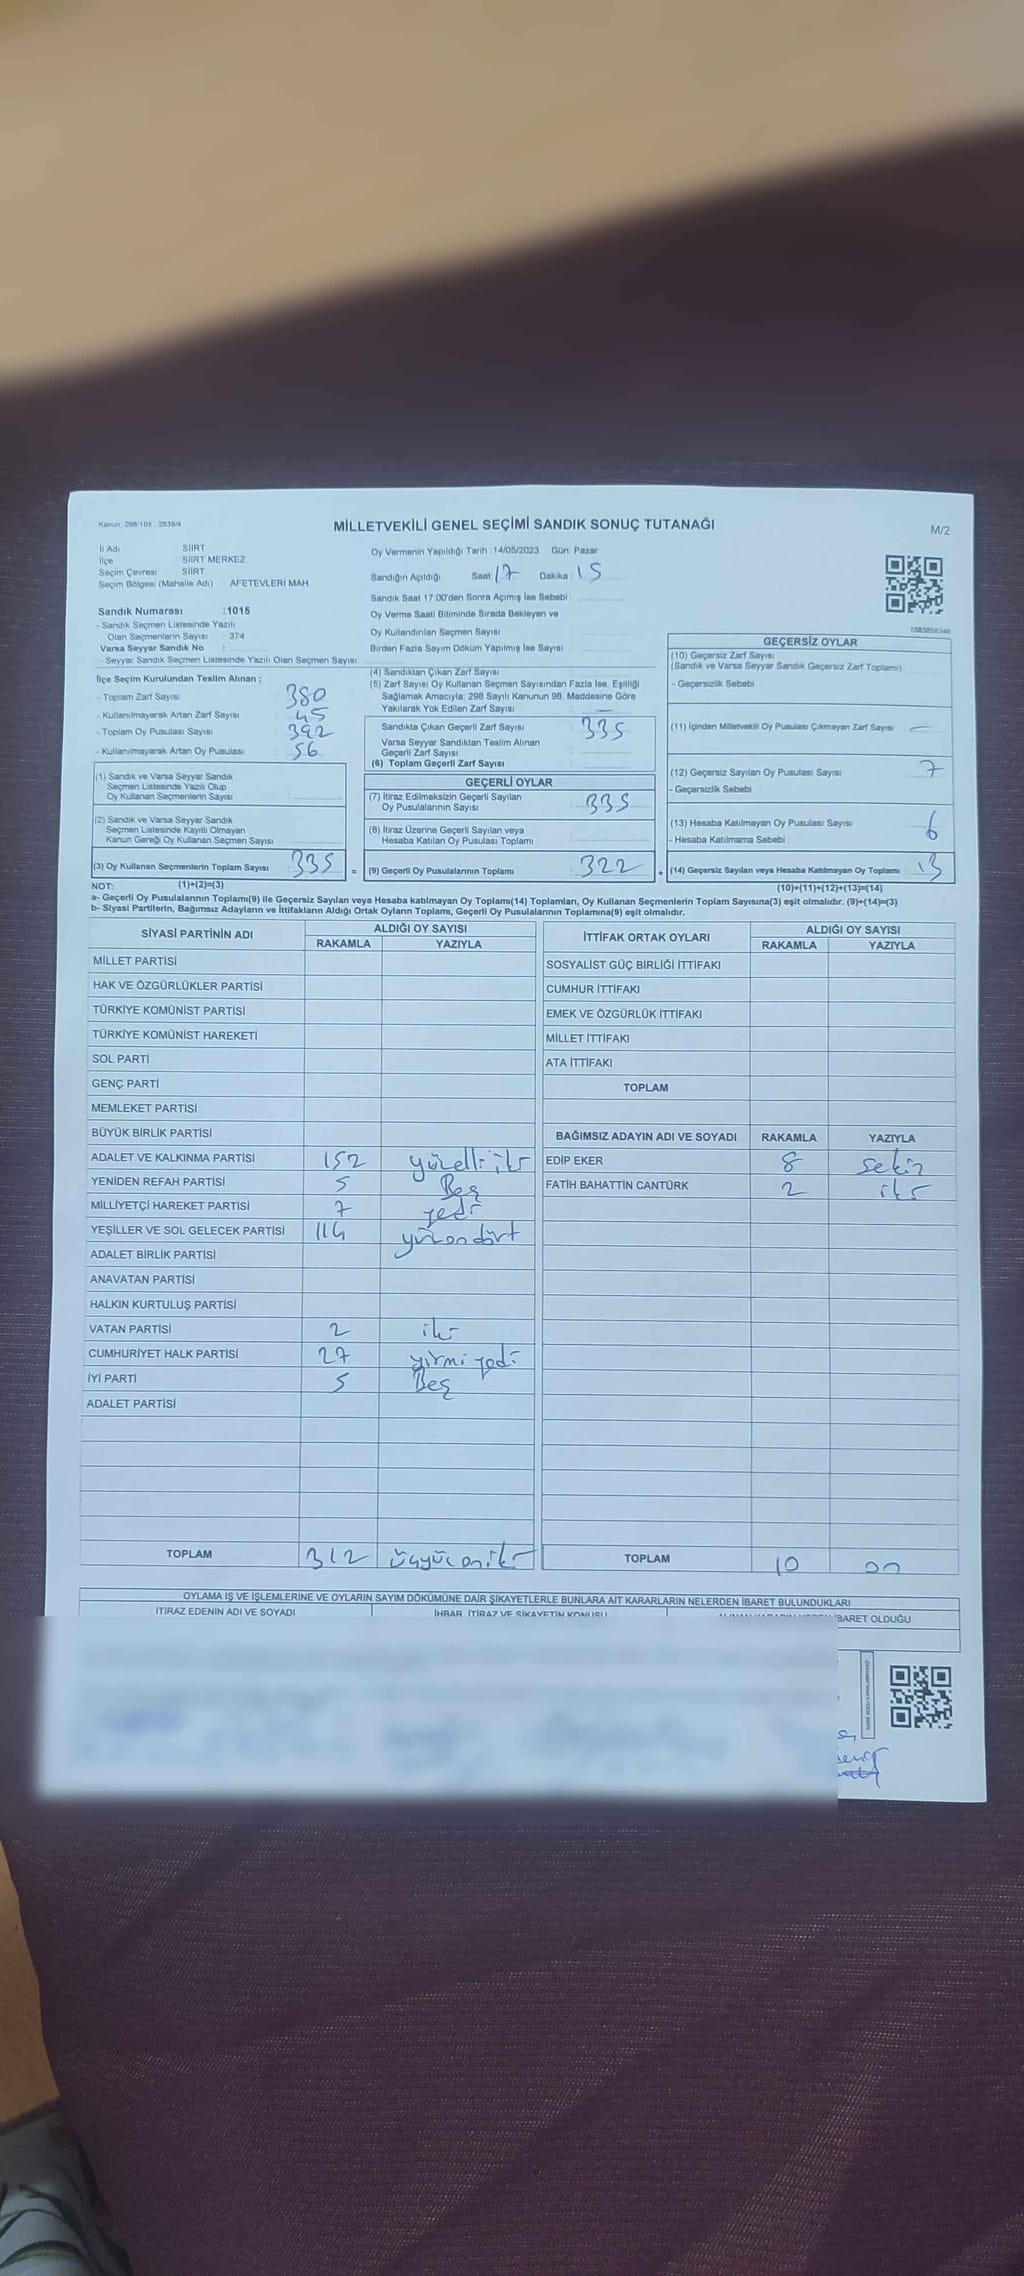 Kanun: 298/105 , 2839/4
MİLLETVEKİLİ GENEL SEÇİMİ SANDIK SONUÇ TUTANAĞI
M/2
İl Adı SİİRT
İlçe SİİRT MERKEZ
Seçim Çevresi SİİRT
Seçim Bölgesi (Mahalle Adı) AFETEVLERİ MAH
Sandık Numarası :1015
- Sandık Seçmen Listesinde Yazılı
Olan Seçmenlerin Sayısı : 374
Varsa Seyyar Sandık No :
- Seyyar Sandık Seçmen Listesinde Yazılı Olan Seçmen Sayısı
İlçe Seçim Kurulundan Teslim Alınan ;
- Toplam Zarf Sayısı : 380
- Kullanılmayarak Artan Zarf Sayısı : 45
- Toplam Oy Pusulası Sayısı : 392
- Kullanılmayarak Artan Oy Pusulası : 56
(1) Sandık ve Varsa Seyyar Sandık
Seçmen Listesinde Yazılı Olup
Oy Kullanan Seçmenlerin Sayısı
(2) Sandık ve Varsa Seyyar Sandık
Seçmen Listesinde Kayıtlı Olmayan
Kanun Gereği Oy Kullanan Seçmen Sayısı
(3) Oy Kullanan Seçmenlerin Toplam Sayısı 335
Oy Vermenin Yapıldığı Tarih :14/05/2023 Gün: Pazar
Sandığın Açıldığı Saat: 17 Dakika : 15
Sandık Saat 17:00'den Sonra Açımış İse Sebebi :
Oy Verme Saati Bitiminde Sırada Bekleyen ve
Oy Kullandırılan Seçmen Sayısı
Birden Fazla Sayım Döküm Yapılmış İse Sayısı
(4) Sandıktan Çıkan Zarf Sayısı
(5) Zarf Sayısı Oy Kullanan Seçmen Sayısından Fazla İse, Eşitliği
Sağlamak Amacıyla; 298 Sayılı Kanunun 98. Maddesine Göre
Yakılarak Yok Edilen Zarf Sayısı : —
Sandıkta Çıkan Geçerli Zarf Sayısı : 335
Varsa Seyyar Sandıktan Teslim Alınan
Geçerli Zarf Sayısı
(6) Toplam Geçerli Zarf Sayısı
GEÇERLİ OYLAR
(7) İtiraz Edilmeksizin Geçerli Sayılan
Oy Pusulalarının Sayısı : 335
(8) İtiraz Üzerine Geçerli Sayılan veya
Hesaba Katılan Oy Pusulası Toplamı
= (9) Geçerli Oy Pusulalarının Toplamı : 322
1083856346
GEÇERSİZ OYLAR
(10) Geçersiz Zarf Sayısı
(Sandık ve Varsa Seyyar Sandık Geçersiz Zarf Toplamı)
- Geçersizlik Sebebi
(11) İçinden Milletvekili Oy Pusulası Çıkmayan Zarf Sayısı —
(12) Geçersiz Sayılan Oy Pusulası Sayısı 7
- Geçersizlik Sebebi
(13) Hesaba Katılmayan Oy Pusulası Sayısı : 6
- Hesaba Katılmama Sebebi :
+ (14) Geçersiz Sayılan veya Hesaba Katılmayan Oy Toplamı : 13
NOT: (1)+(2)=(3) (10)+(11)+(12)+(13)=(14)
a- Geçerli Oy Pusulalarının Toplamı(9) ile Geçersiz Sayılan veya Hesaba katılmayan Oy Toplamı(14) Toplamları, Oy Kullanan Seçmenlerin Toplam Sayısına(3) eşit olmalıdır. (9)+(14)=(3)
b- Siyasi Partilerin, Bağımsız Adayların ve İttifakların Aldığı Ortak Oyların Toplamı, Geçerli Oy Pusulalarının Toplamına(9) eşit olmalıdır.
SİYASİ PARTİNİN ADI ALDIĞI OY SAYISI
RAKAMLA YAZIYLA
MİLLET PARTİSİ
HAK VE ÖZGÜRLÜKLER PARTİSİ
TÜRKİYE KOMÜNİST PARTİSİ
TÜRKİYE KOMÜNİST HAREKETİ
SOL PARTİ
GENÇ PARTİ
MEMLEKET PARTİSİ
BÜYÜK BİRLİK PARTİSİ
ADALET VE KALKINMA PARTİSİ 152 yüzelli iki
YENİDEN REFAH PARTİSİ 5 Beş
MİLLİYETÇİ HAREKET PARTİSİ 7 yedi
YEŞİLLER VE SOL GELECEK PARTİSİ 114 yüzondört
ADALET BİRLİK PARTİSİ
ANAVATAN PARTİSİ
HALKIN KURTULUŞ PARTİSİ
VATAN PARTİSİ 2 iki
CUMHURİYET HALK PARTİSİ 27 yirmi yedi
İYİ PARTİ 5 Beş
ADALET PARTİSİ
TOPLAM 312 üçyüz oniki
İTTİFAK ORTAK OYLARI ALDIĞI OY SAYISI
RAKAMLA YAZIYLA
SOSYALİST GÜÇ BİRLİĞİ İTTİFAKI
CUMHUR İTTİFAKI
EMEK VE ÖZGÜRLÜK İTTİFAKI
MİLLET İTTİFAKI
ATA İTTİFAKI
TOPLAM
BAĞIMSIZ ADAYIN ADI VE SOYADI RAKAMLA YAZIYLA
EDİP EKER 8 sekiz
FATİH BAHATTİN CANTÜRK 2 iki
TOPLAM 10 on
OYLAMA İŞ VE İŞLEMLERİNE VE OYLARIN SAYIM DÖKÜMÜNE DAİR ŞİKAYETLERLE BUNLARA AİT KARARLARIN NELERDEN İBARET BULUNDUKLARI
İTİRAZ EDENİN ADI VE SOYADI İHBAR, İTİRAZ VE ŞİKAYETİN KONUSU ALINAN KARARIN NEDEN İBARET OLDUĞU